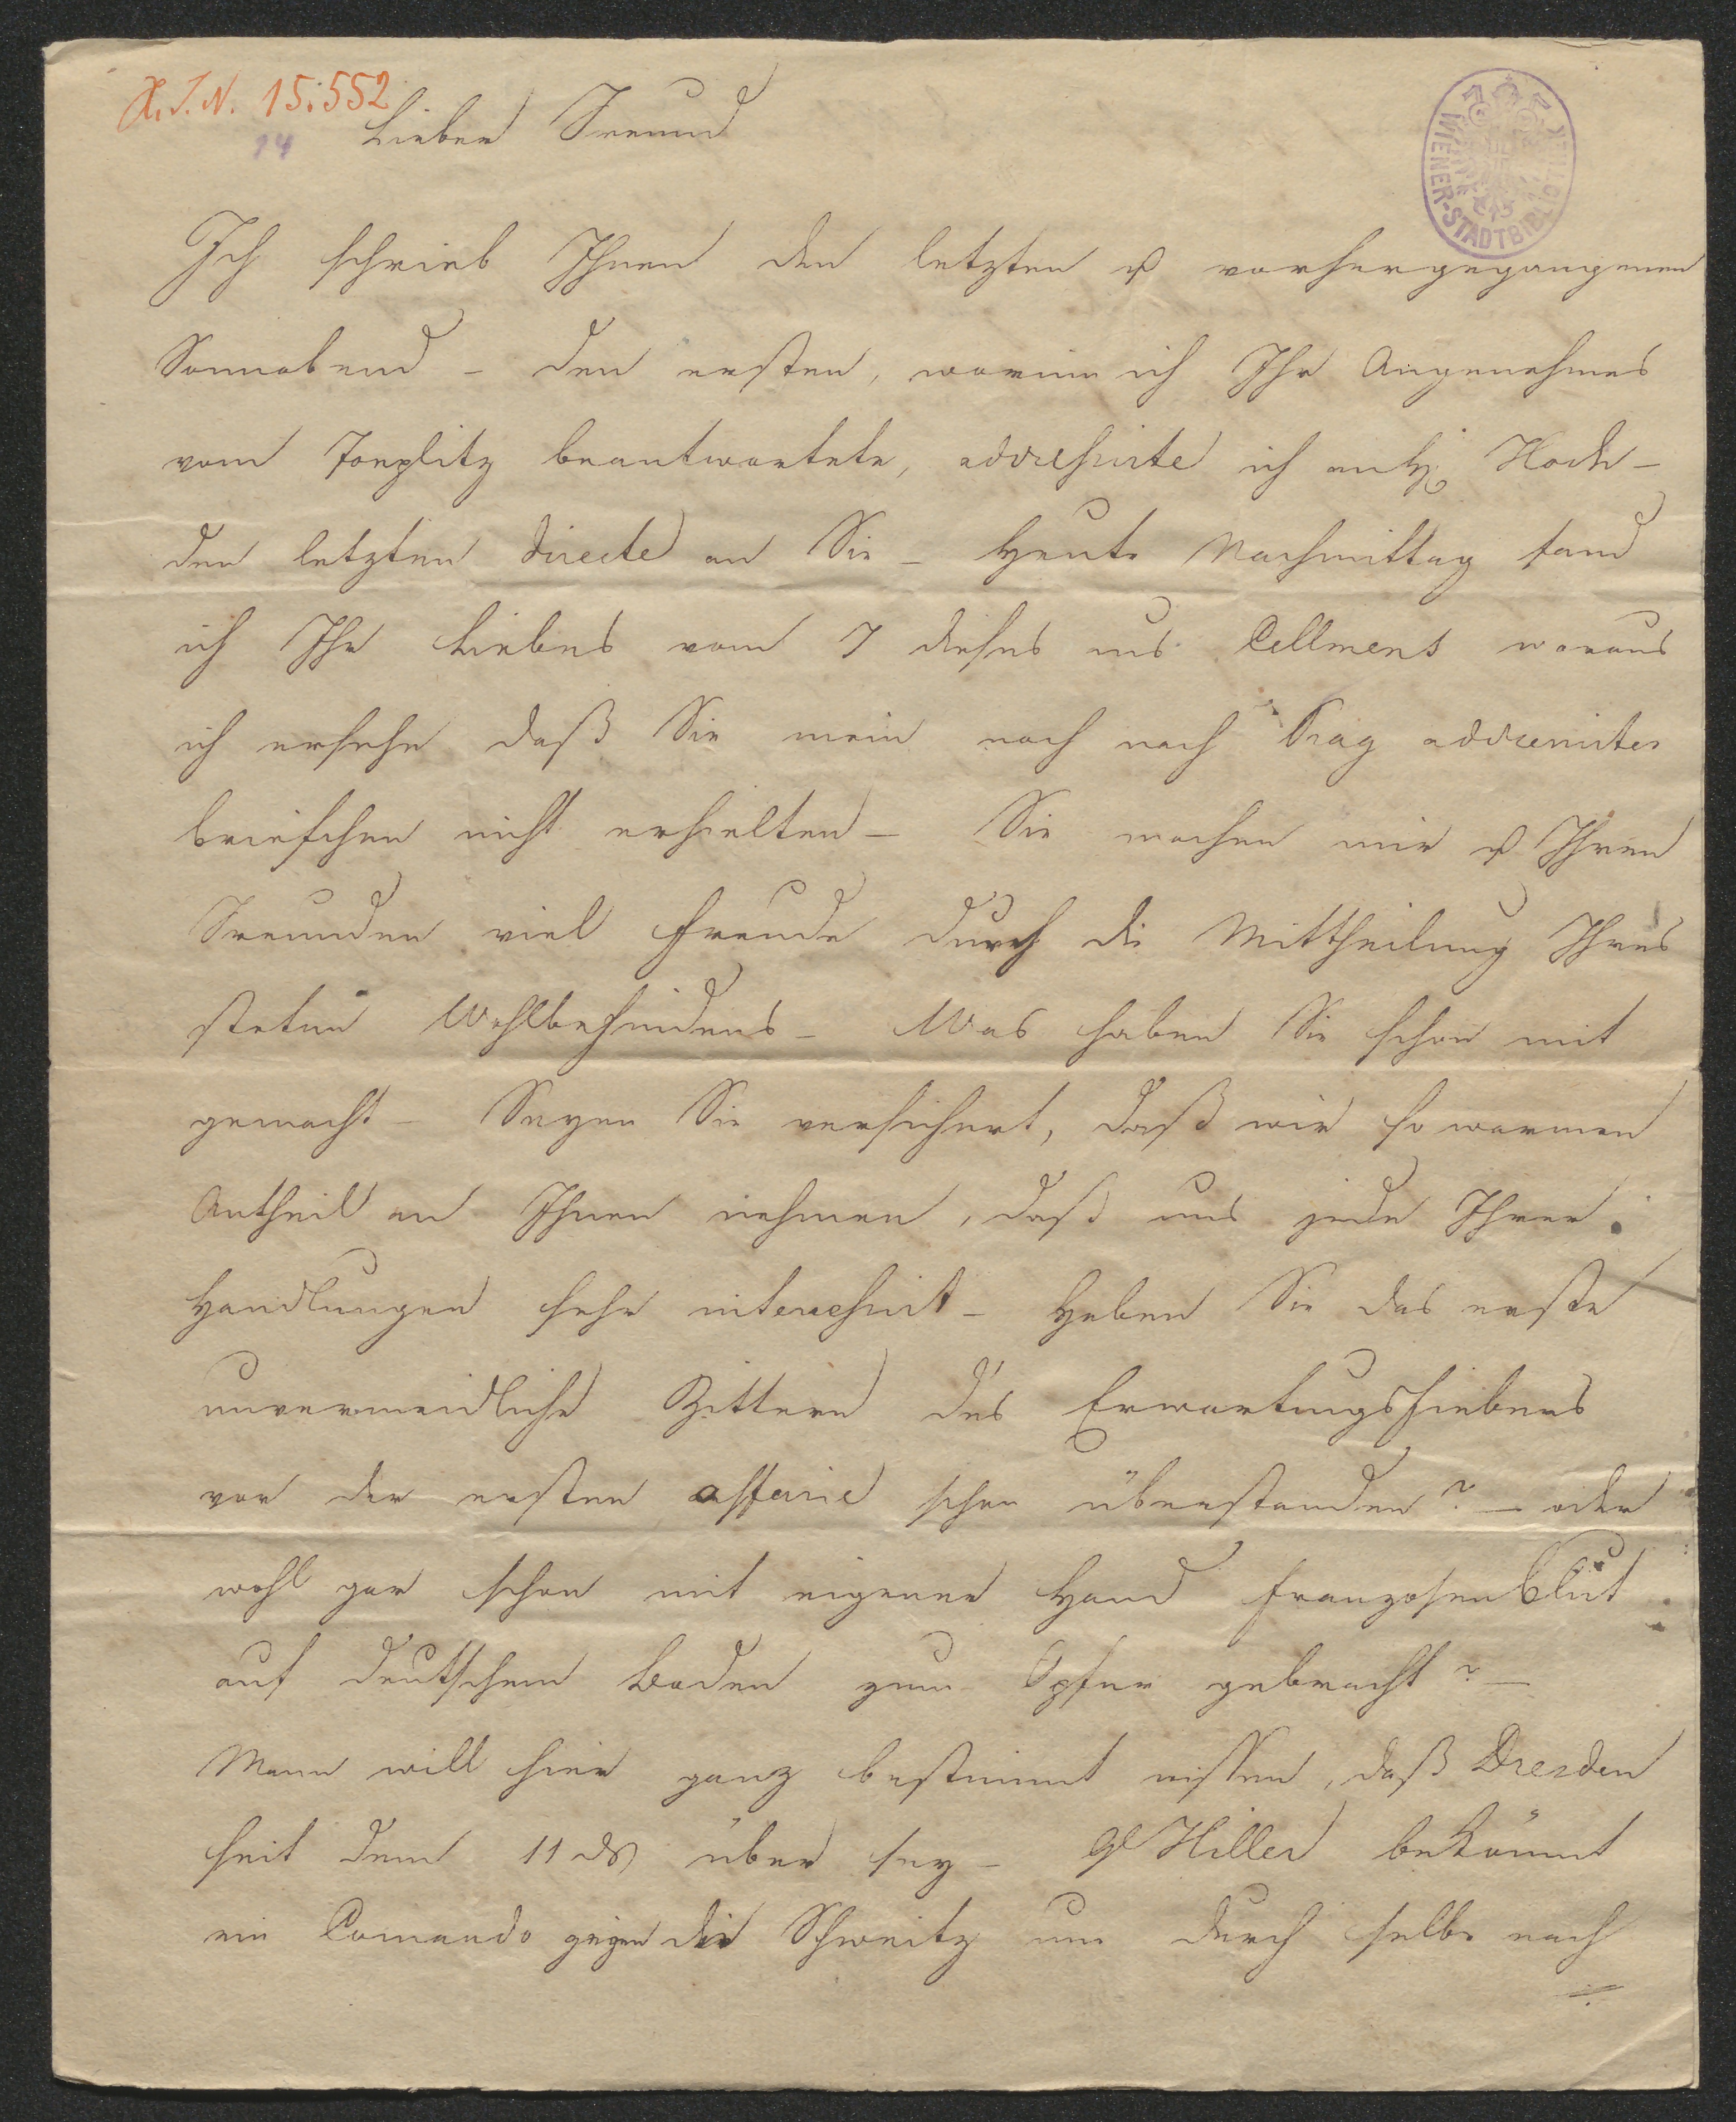 H.I.N. 15.552
24
WIENER-STADTBIBLIOTHEK
Lieber Freund
Ich schrieb Ihnen den letzten u vorhergegangenen
Sonnabend – den ersten, worinn ich Ihr Angenehmes
vom Toeplitz beantwortete, addressirte ich an H:
den letzten directe an Sie – Heute Nachmittag fand
ich Ihr Liebes vom 7 dieses aus woraus
ich ersehe daß Sie mein noch nach Prag addressirtes
briefchen nicht erhielten – Sie machen mir u Ihren
Freunden viel Freude durch die Mittheilung Ihres
steten Wohlbefindens – Was haben Sie schon mit
gemacht – Seyen Sie versichert, daß wir so warmen
Antheil an Ihnen nehmen, daß uns jede Ihrer
Handlungen sehr interessirt – Haben Sie das erste
unvermeidliche Zittern des Erwartungsfiebers
vor der ersten affaire schon überstanden? – oder
wohl gar schon mit eigener Hand Franzosenblut
auf deutschem Boden zum Opfer gebracht? –
Mann will hier ganz bestimmt wissen, daß Dresden
seit dem 11 ds über sey – Gl Hiller bekömmt
ein Comando gegen die Schweitz um durch selbe nach